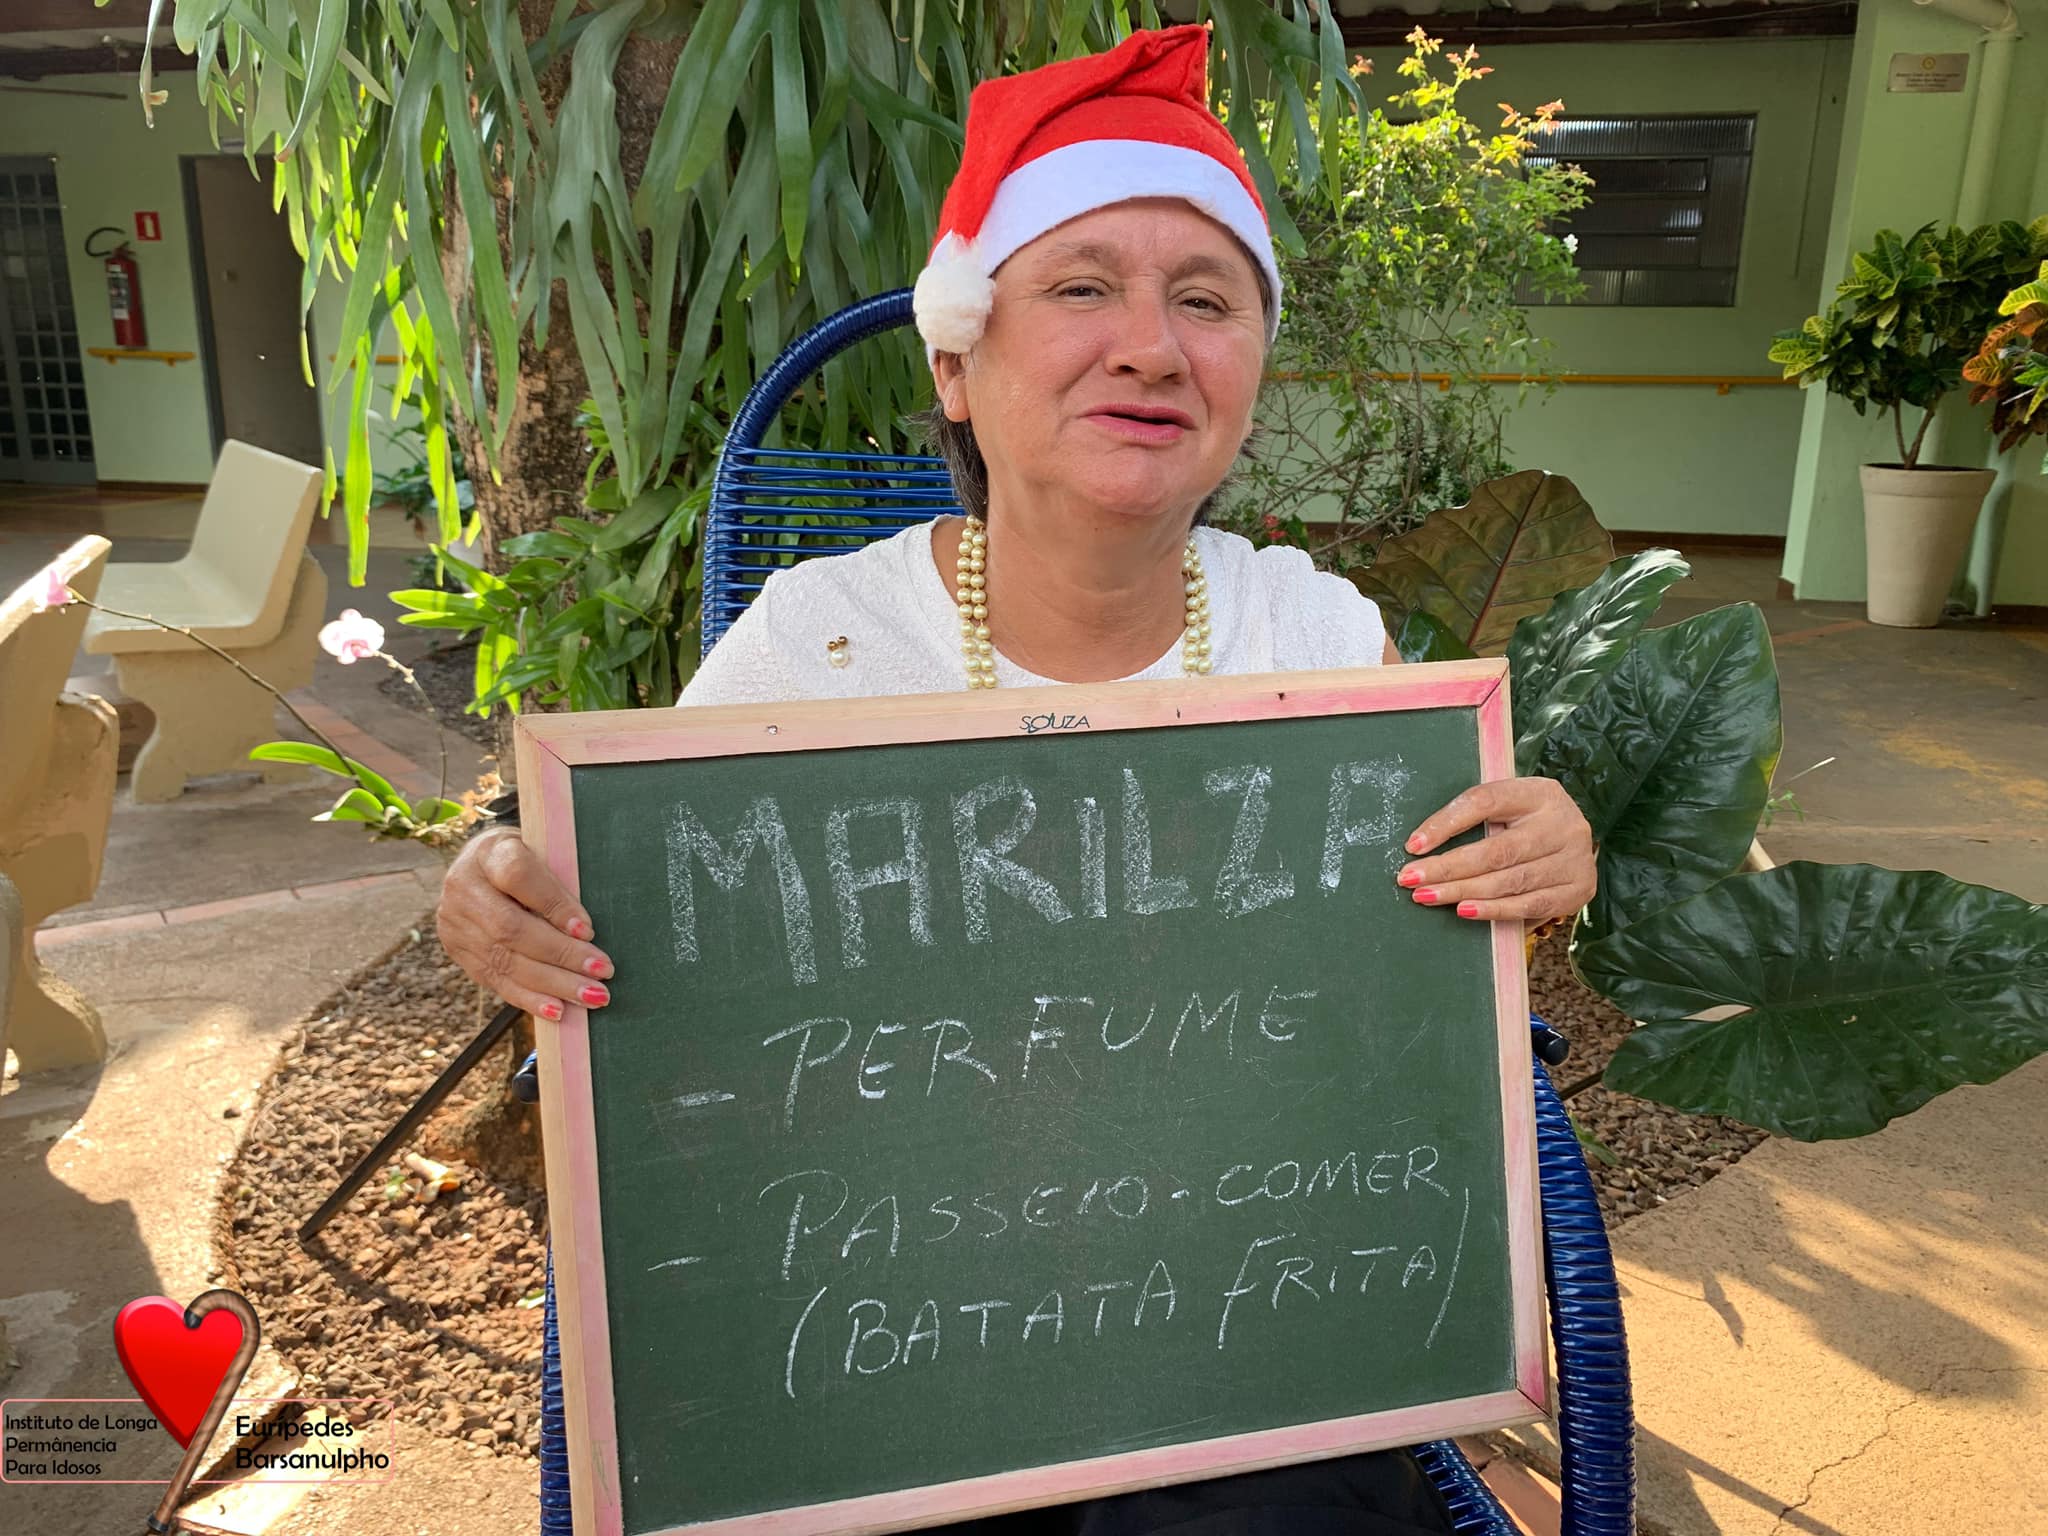 SOUZA
MARILZA
- PERFUME
- PASSEIO - COMER
(BATATA FRITA)
Instituto de Longa
Permânencia
Para Idosos
Eurípedes
Barsanulpho